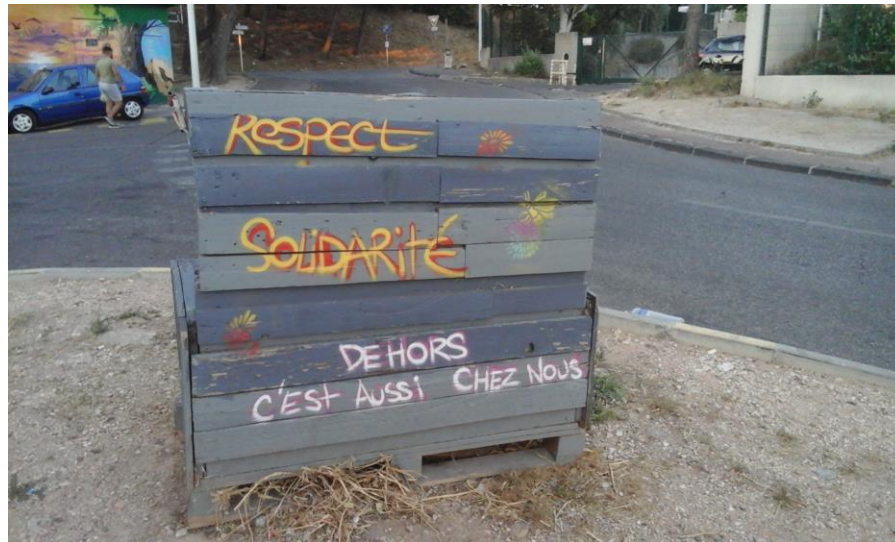 RESPECT
SOLIDARITÉ
DEHORS
C'EST AUSSI CHEZ NOUS